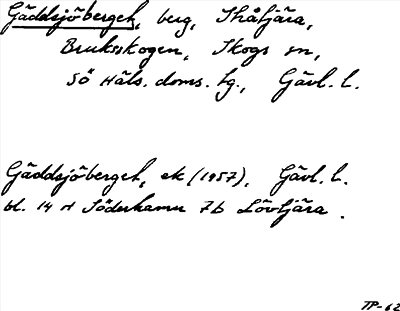 Gäddsjöberget, berg, Skålfjära,
Bruksskogen, Skogs sn,
Sö Häls. doms. tg., Gävl. l.
Gäddsjöberget, ek (1957), Gävl. l.
bl. 14 H Söderhamn 7b Lövtjära.
TP-62